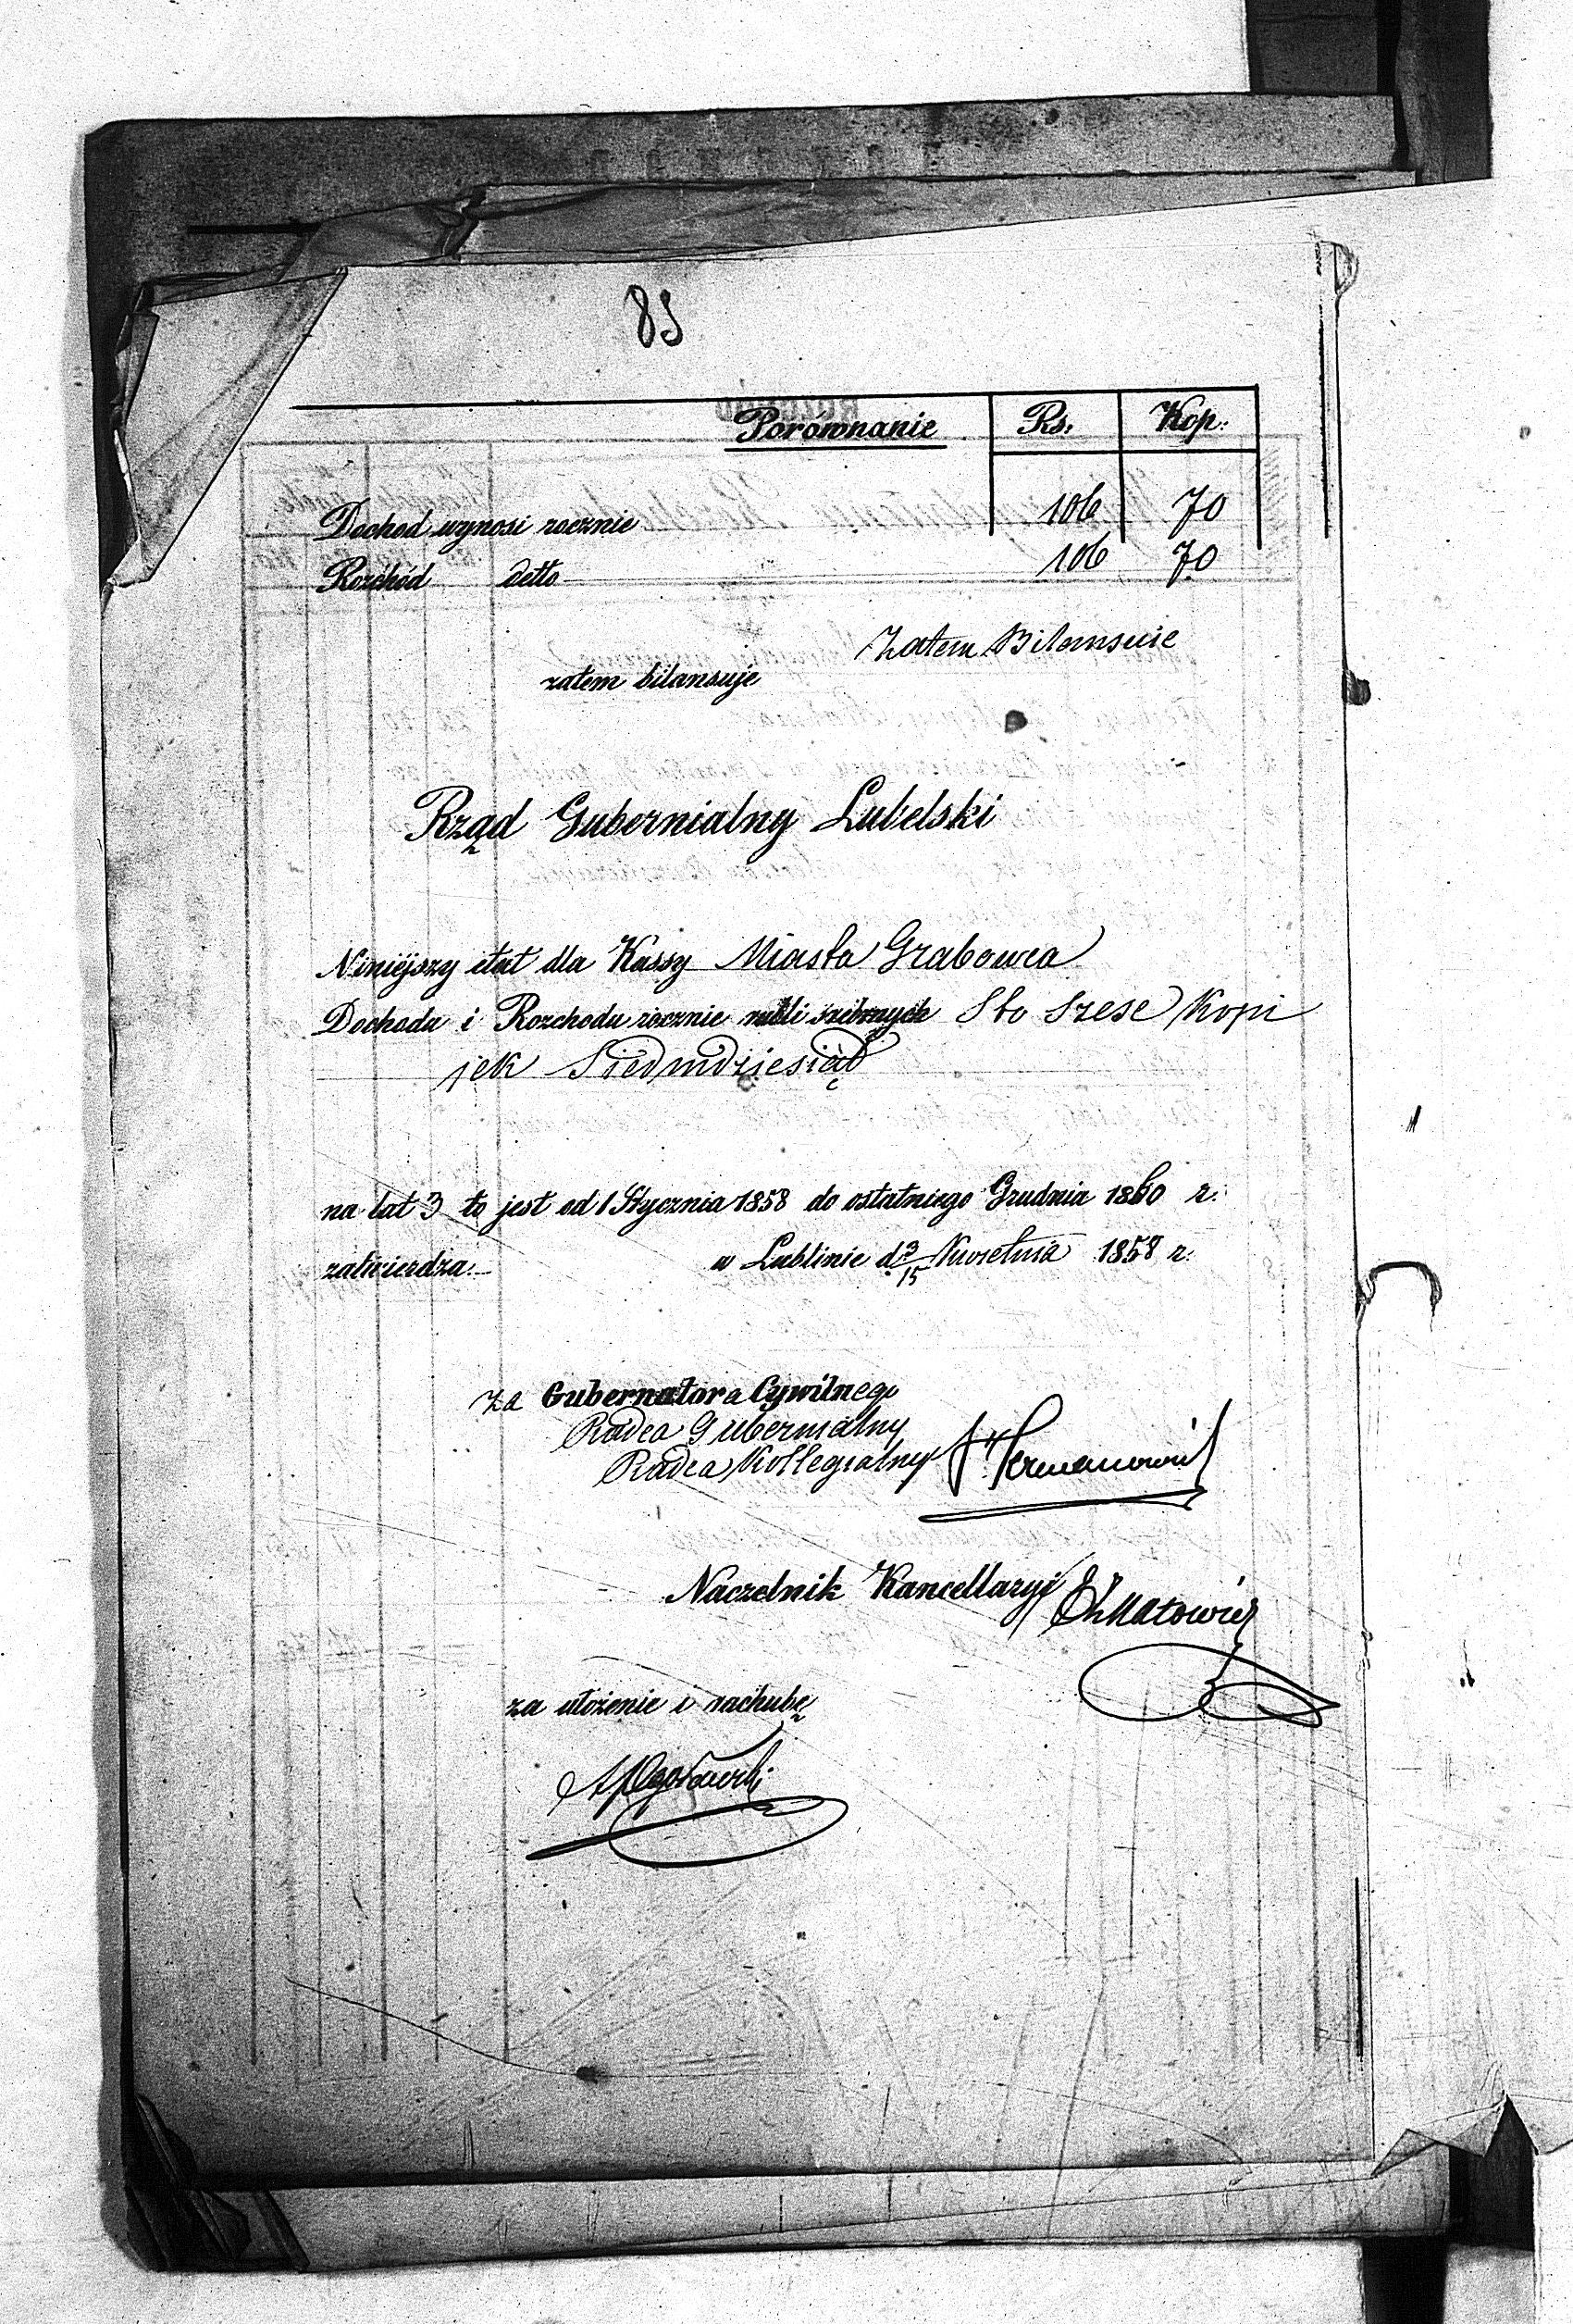 85
Porównanie Rs. Kop:
Dochod wynosi rocznie 106 70
Rozchód detto 106 70
Zatem Bilansuie
zatem bilansuje
Rząd Gubernialny Lubelski
Niniéjszy etat dla Kassy Miasta Grabowca
Dochodu i Rozchodu rocznie rubli srebrnych Sto Szesc Kopi
jek Siedmdziesiąt
na lat 3 to jest od 1 Stycznia 1858 do ostatniego Grudnia 1860 r.
zatwierdza. w Lublinie d. 3/15 Kwietnia 1858 r.
za Gubernatora Cywilnego
Radca Gubernialny
Radca Kollegialny
Naczelnik Kancellaryi
za ułożenie i rachubę